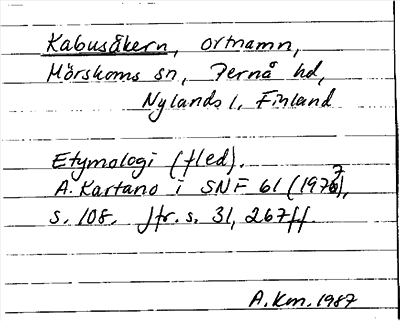 Kabusåkern, ortnamn,
Mörskoms sn, Pernå hd,
Nylands l, Finland
Etymologi (fled).
A. Kartano i SNF 61 (1977),
s. 108. Jfr. s. 31, 267ff.
A.Km. 1987